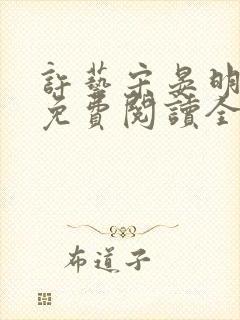 許藝宋晏明
免費閱讀全
布道子